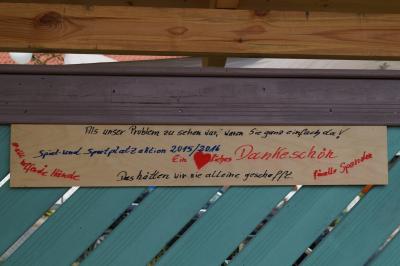 Als unser Problem zu sehen war, waren Sie ganz einfach da!
Spiel- und Sportplatzaktion 2015/2016
Ein ❤liches Dankeschön
helfende Hände
finelle Spenden
Das hätten wir nie alleine geschafft.